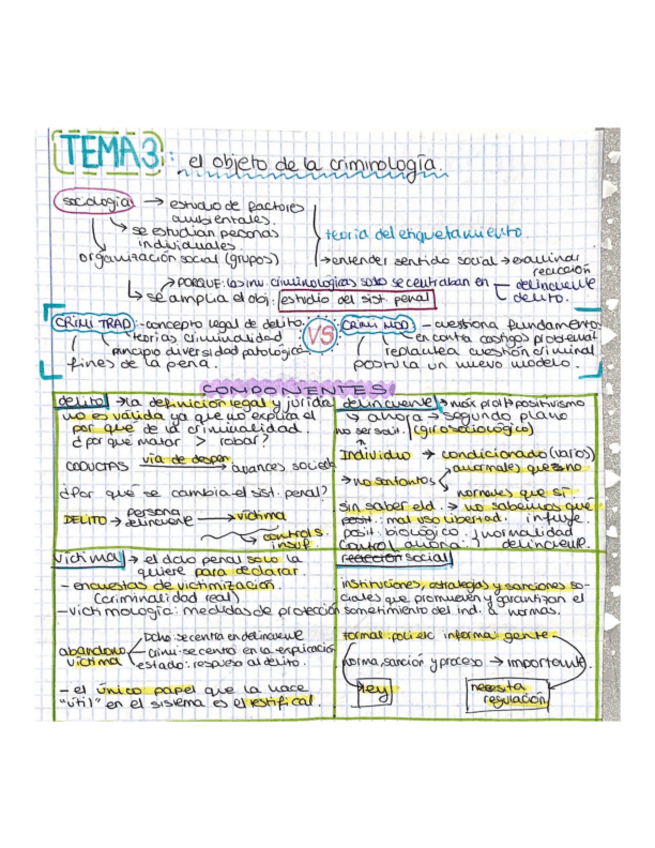 TEMA 3: el objeto de la criminología.
sociología → estudio de factores
ambientales.
→ se estudian personas
individuales.
organización social (grupos)
teoría del etiquetamiento.
→ entender sentido social → examinar
reacción
→ PORQUE: las inv. criminologicas solo se centraban en
delincuente
delito.
→ se amplia el obj: estudio del sist. penal
CRIMI TRAD: -concepto legal de delito.
teorias criminalidad
principio diversidad patologica
fines de la pena.
VS
CRIMI MOD - cuestiona fundamento
en contra castigos problemat
replantea cuestión criminal
postula un nuevo modelo.
COMPONENTES
delito → la definición legal y juridi
no es válida ya que no explica el
por que de la criminalidad.
¿por que matar > robar?
CODUCTAS via de despen → avances socied
¿Por qué se cambia el sist. penal?
DELITO → persona
delincuente → victima
control s.
insuf.
delincuente → positivismo
→ ahora → segundo plano
(giro sociológico)
Individuo → condicionado (varios)
→ no son tontos
anormales que no
normales que si
sin saber el d. → no sabemos que
posit. mal uso libertad. influye.
posit. biológico. normalidad
control ahora. delincuente.
víctima → el dcho penal solo la
quiere para declarar.
- encuestas de victimización.
(criminalidad real)
- victimología: medidas de protección
abandono
víctima
Dcho: se centra en delincuente
Crimi: se centro en la explicación
estado: respuesta al delito.
- el único papel que la hace
"útil" en el sistema es el testifical.
reacción social
instituciones, estrategias y sanciones so-
ciales que promueven y garantizan el
sometimiento del ind. a normas.
formal: poli etc informal: gente.
norma, sanción y proceso → importante.
ley
necesita
regulación